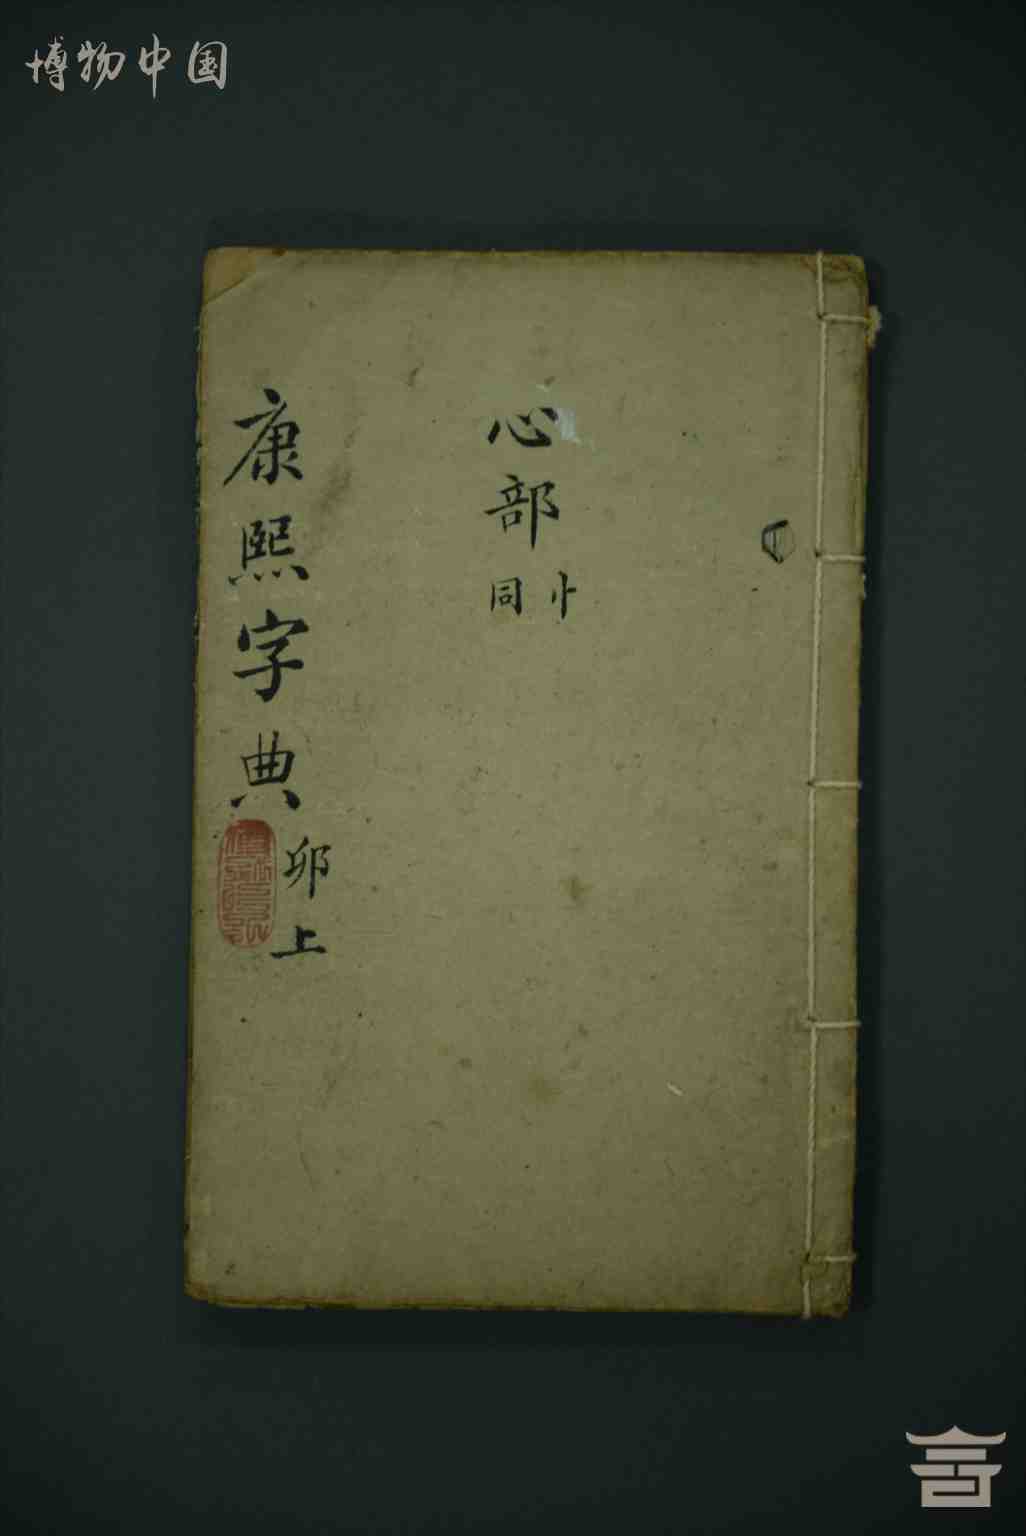 博物中国
心部
忄同
康熙字典
卯上